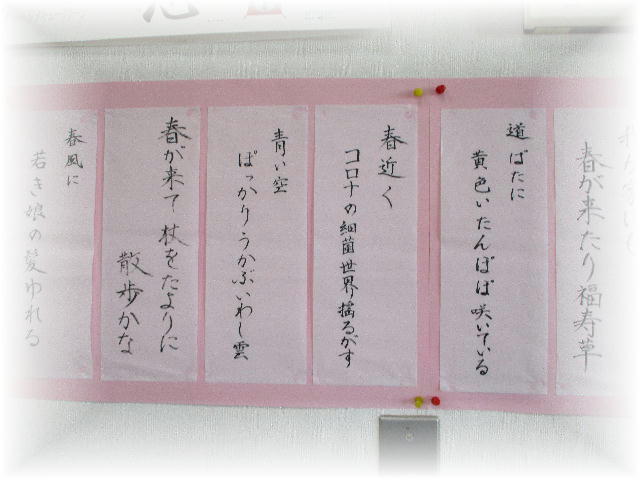 春が来たり福寿草
道ばたに
黄色いたんぽぽ咲いている
春近く
コロナの細菌世界揺るがす
青い空
ぽっかりうかぶいわし雲
春が来て杖をたよりに
散歩かな
春風に
若き娘の髪ゆれる